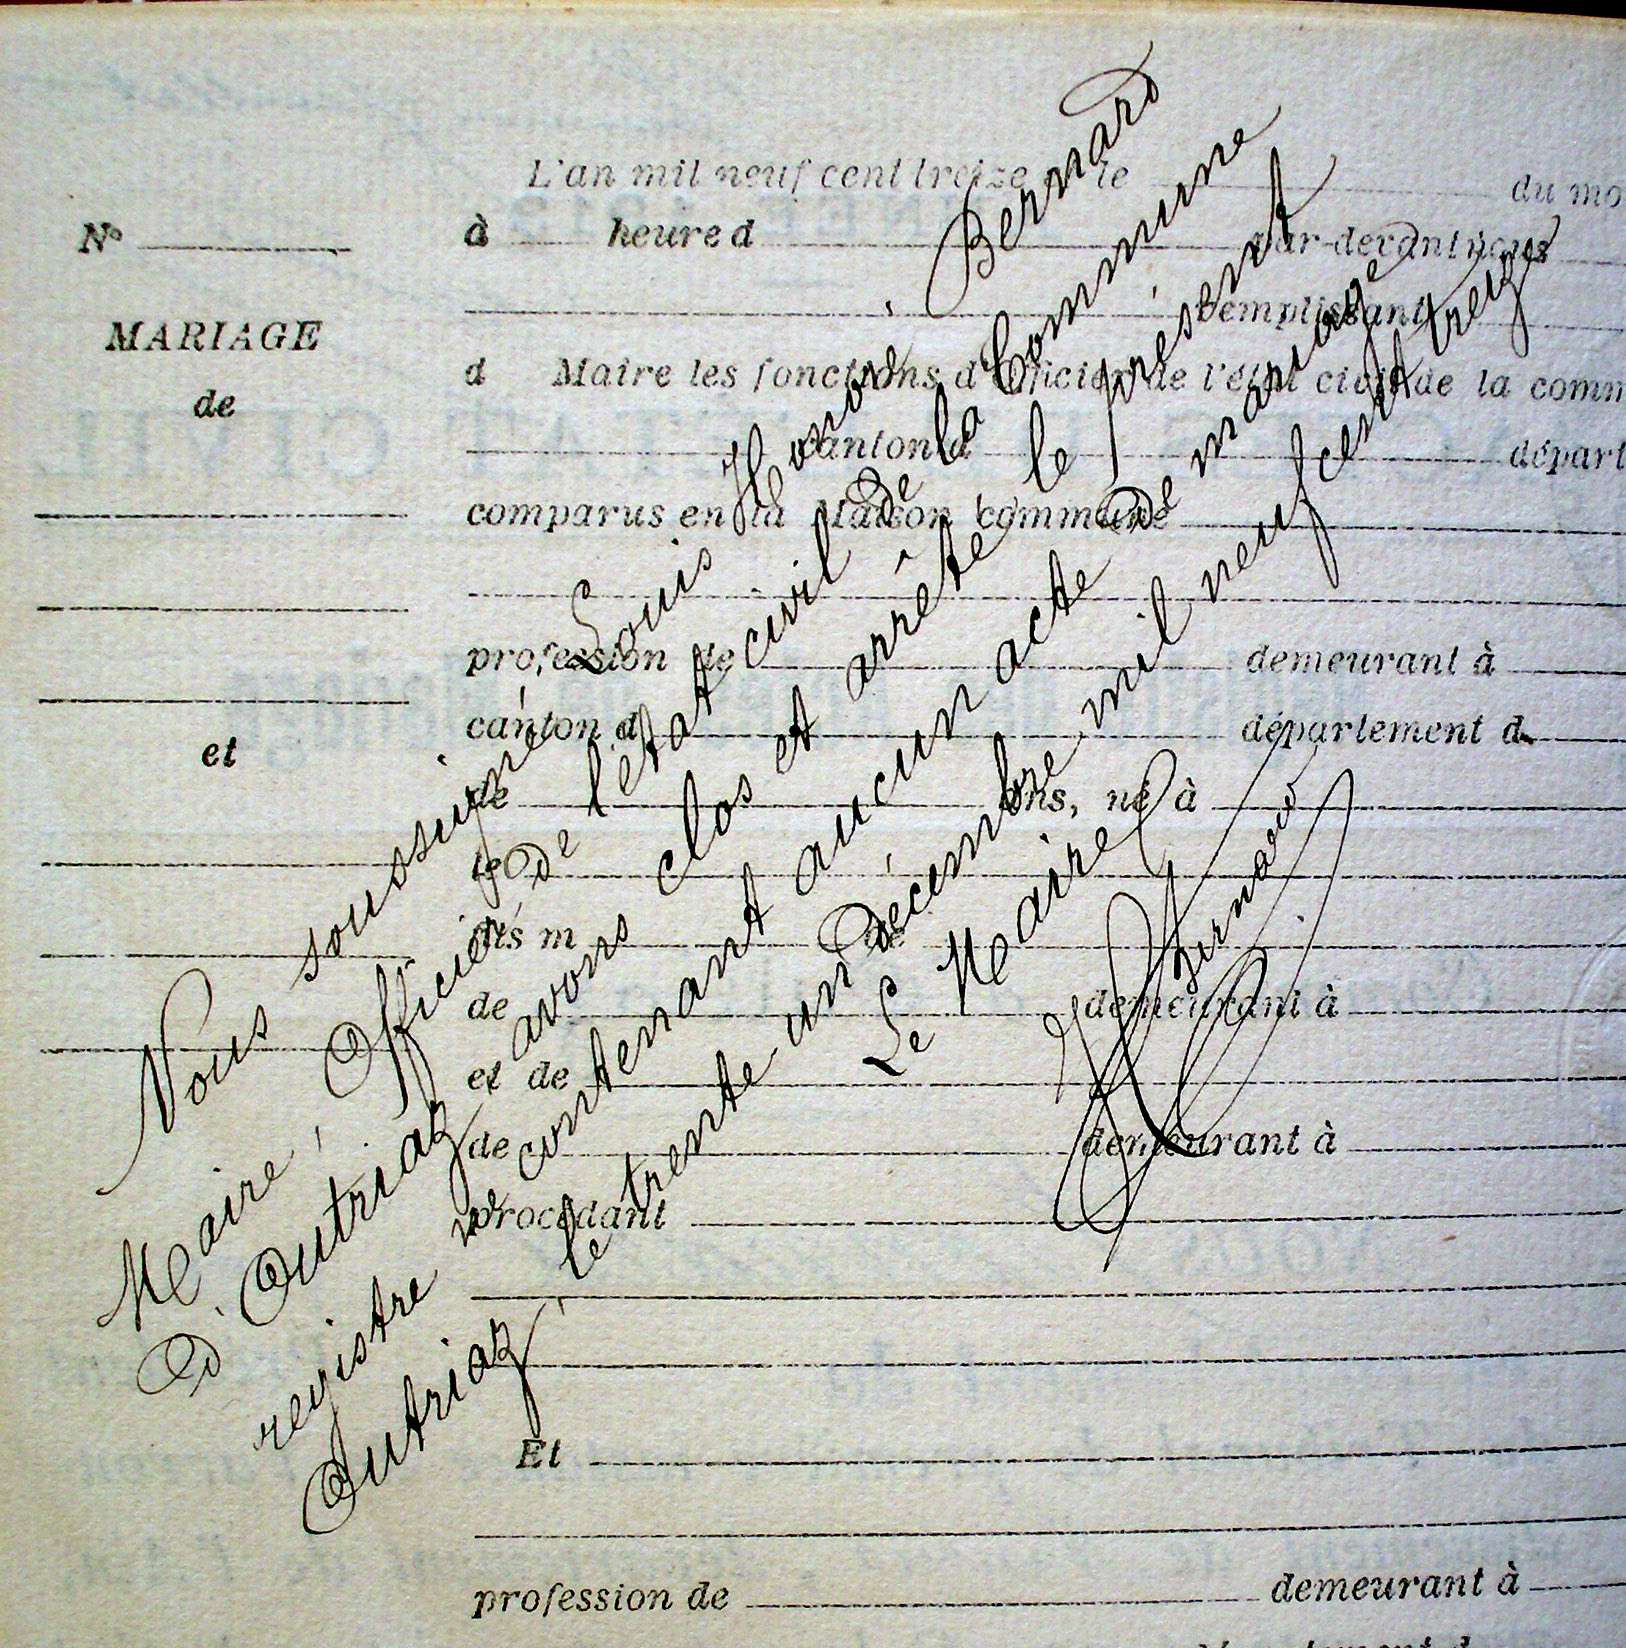 L'an mil neuf cent treize le du mo
N° à heure d par-devant nous
remplissant
MARIAGE
d Maire les fonctions d'Officier de l'état civil de la comm
de
canton d départ
comparus en la Maison commune
profession de demeurant à
canton d département d
et
de ans, né à
le
fils m de
de demeurant à
et de
de demeurant à
procédant
Et
profession de demeurant à
Nous soussigné, Louis Honoré Bernard
Maire, Officier de l'état civil de la Commune
d'Outriaz avons clos et arrêté le présent
registre ne contenant aucun acte de mariage
Outriaz, le trente un décembre mil neuf cent treize
Le Maire
Bernard